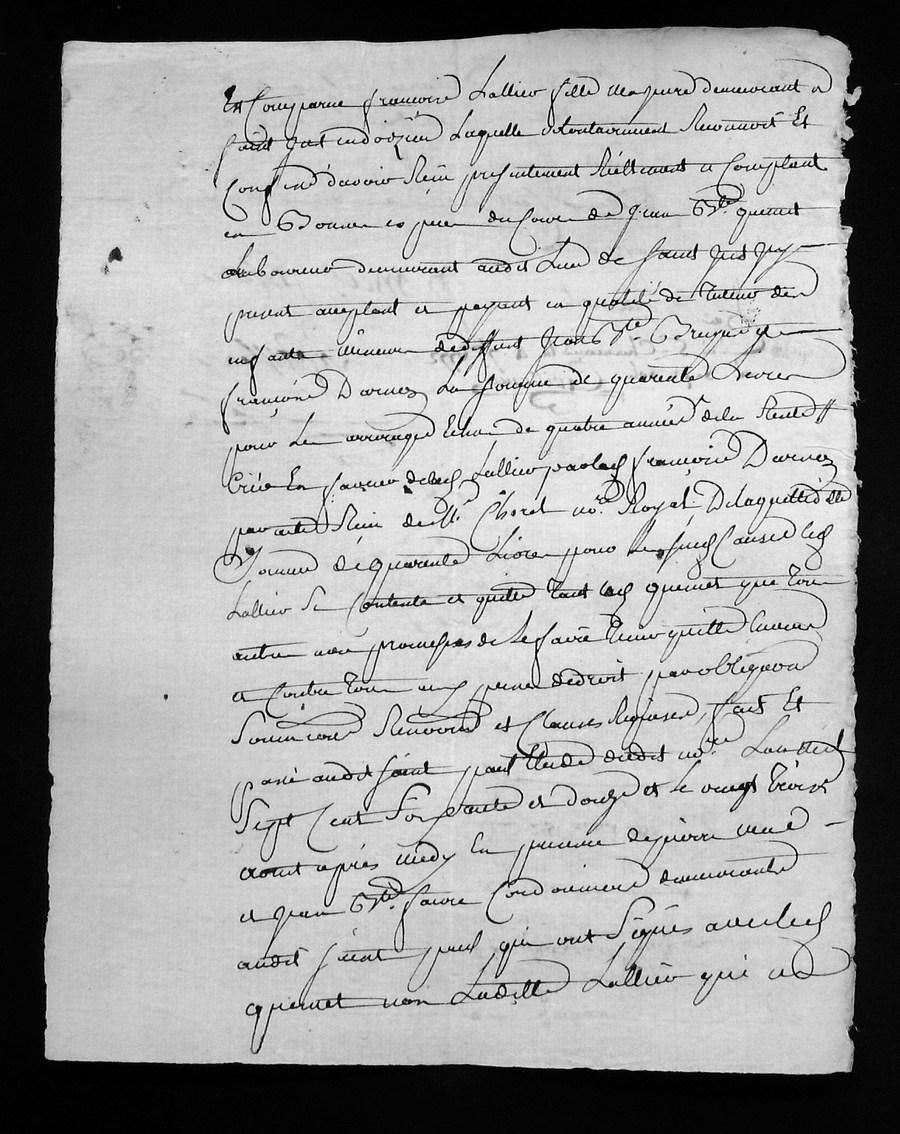 Est Comparue françoise Lallier fille majeure demeurant a
saint just laquelle volontairement Reconnoit Et
Confesse d'avoir Reçu présentement Réellement et Comptant
en Bonnes espèces du Cours de jean Bte. quemet
Laboureur demeurant audit Lieu de saint just
present acceptant et payant en qualité de Tuteur des
enfants mineurs de deffunt Jean Bte. et
françoise Darnez La somme de quarente Livres
pour Les arrerages Echus de quatre années de la Rente
Créé En faveur de lad. Lallier par lad. françoise Darnez
par acte Reçu de Me. Choret nore. Royal De laquelle dte
somme de quarente Livres pour les susd. Causes lad.
Lallier se Contente et quitte tant led. quemet que tous
autres avec promesses de Le faire Tenir quitte Envers
et Contre Tous a peine de droit par obligaon
Soumissions Renvoons et Clauses Requises fait Et
passé audit saint Etude dudit nore. Lan mil
Sept Cent Soixante et douze et le vingt Trois
aout après midy En presence de pierre
et jean Bte. favre Cordonniers demeurants
audit saint qui ont Signés avec led.
quemet non Ladite Lallier qui ne